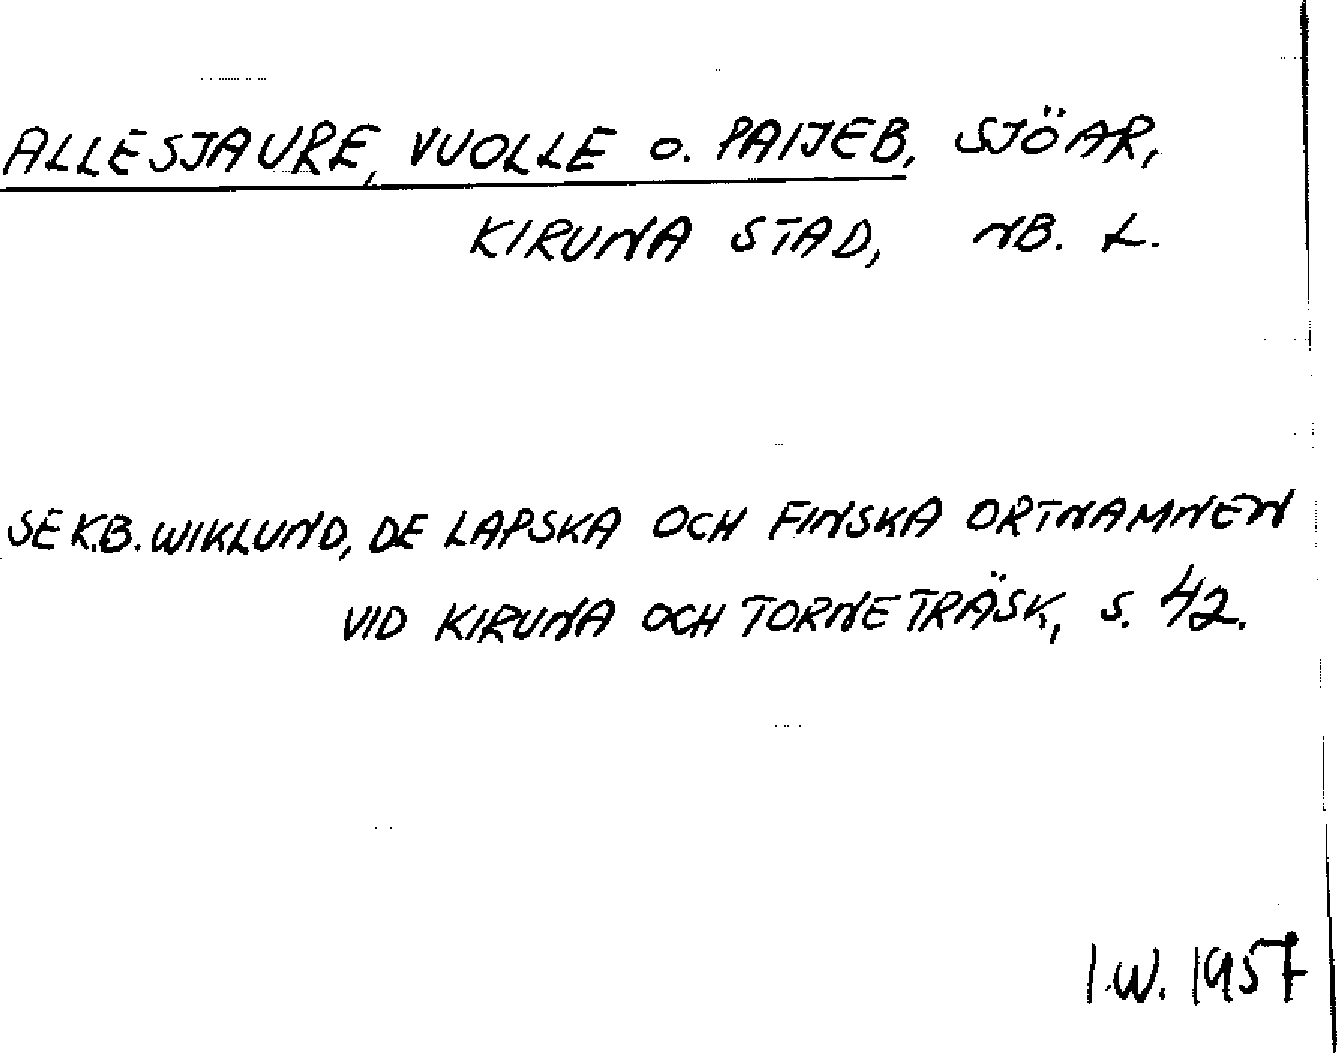 ALLESJAURE, VUOLLE o. PAIJEB, SJÖAR,
KIRUNA STAD, NB. L.
SE K.B. WIKLUND, DE LAPSKA OCH FINSKA ORTNAMNEN
VID KIRUNA OCH TORNETRÄSK, S. 42.
I.W. 1957